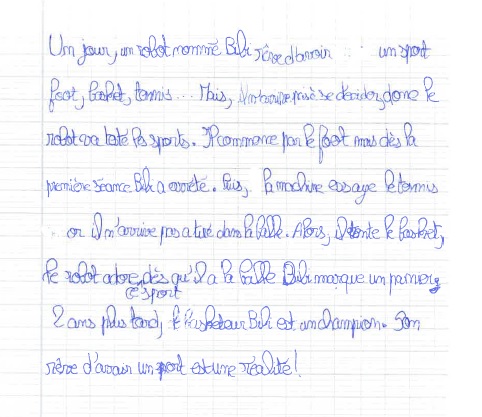 Un jour, un robot nommé Bibi rêve d'avoir un sport
foot, basket, tennis... Mais, il n'arrive pas a se decider, donc le
robot va testé les sports. Il commence par le foot mais dès la
première séance Bibi a arrêté. Puis, la machine essaye le tennis
or il n'arrive pas a tiré dans la balle. Alors, il tente le basket,
le robot adore dès qu'il a la balle Bibi marque un panier,
ce sport
2 ans plus tard, le basketteur Bibi est un champion. Son
rêve d'avoir un sport est une réalité!